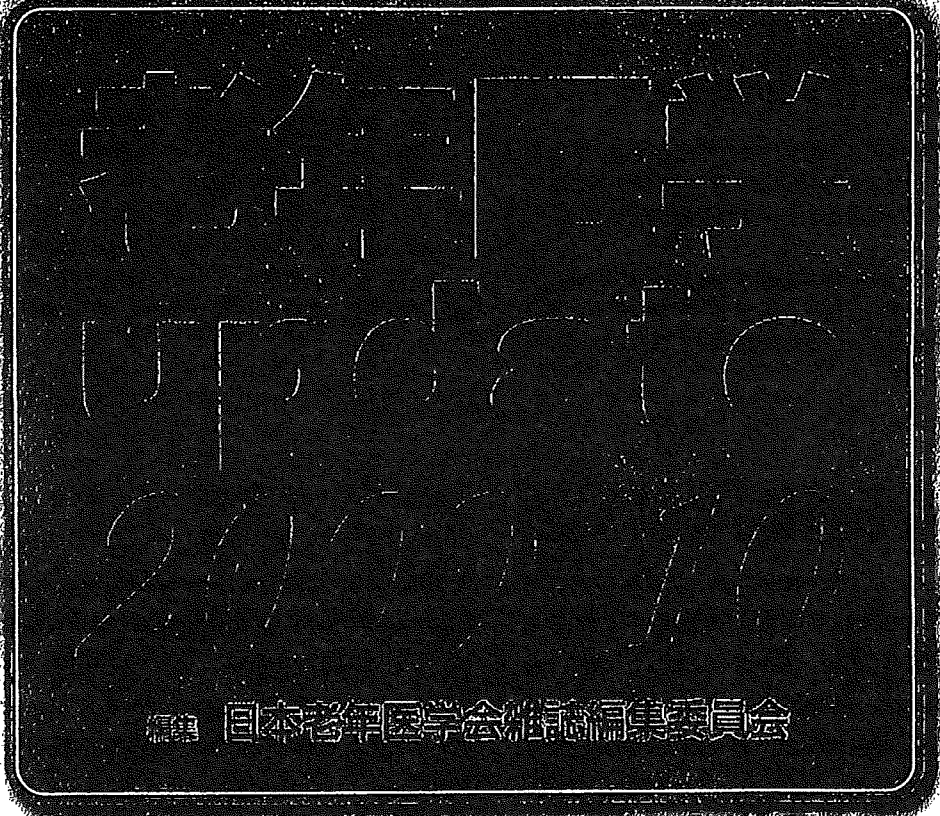 老年医学
update
2009-10
編集 日本老年医学会雑誌編集委員会